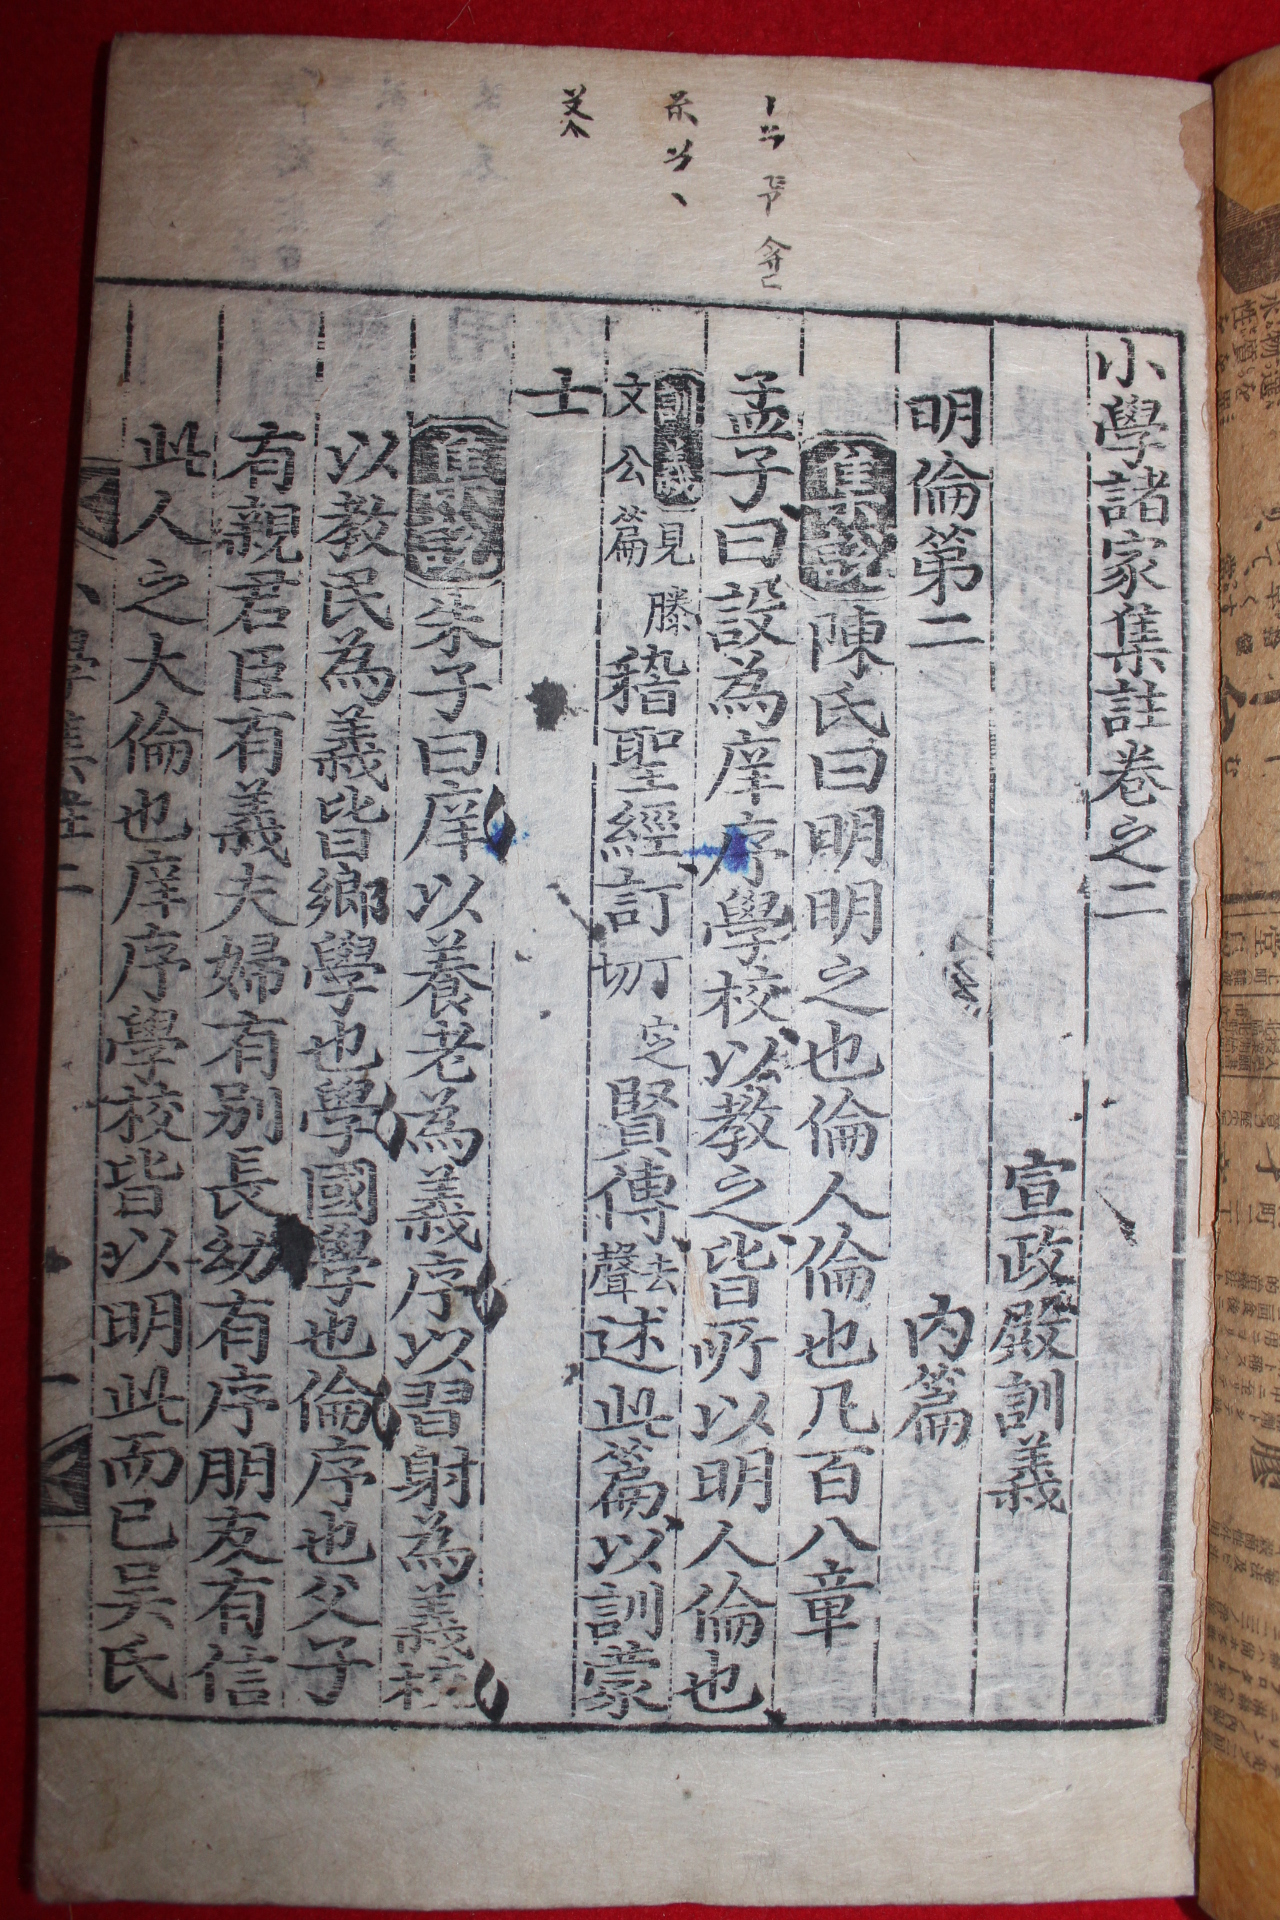 小學諸家集註卷之二
宣政殿訓義
明倫第二
內篇
集說陳氏曰明明之也倫人倫也凡百八章
孟子曰設為庠序學校以教之皆所以明人倫也
訓義見滕
文公篇
稽聖經訂
丁定
切
賢傳
去
聲
述此篇以訓蒙
士
集說朱子曰庠以養老為義序以習射為義校
以教民為義皆鄉學也學國學也倫序也父子
有親君臣有義夫婦有別長幼有序朋友有信
此人之大倫也庠序學校皆以明此而已吳氏
小學集註二
一